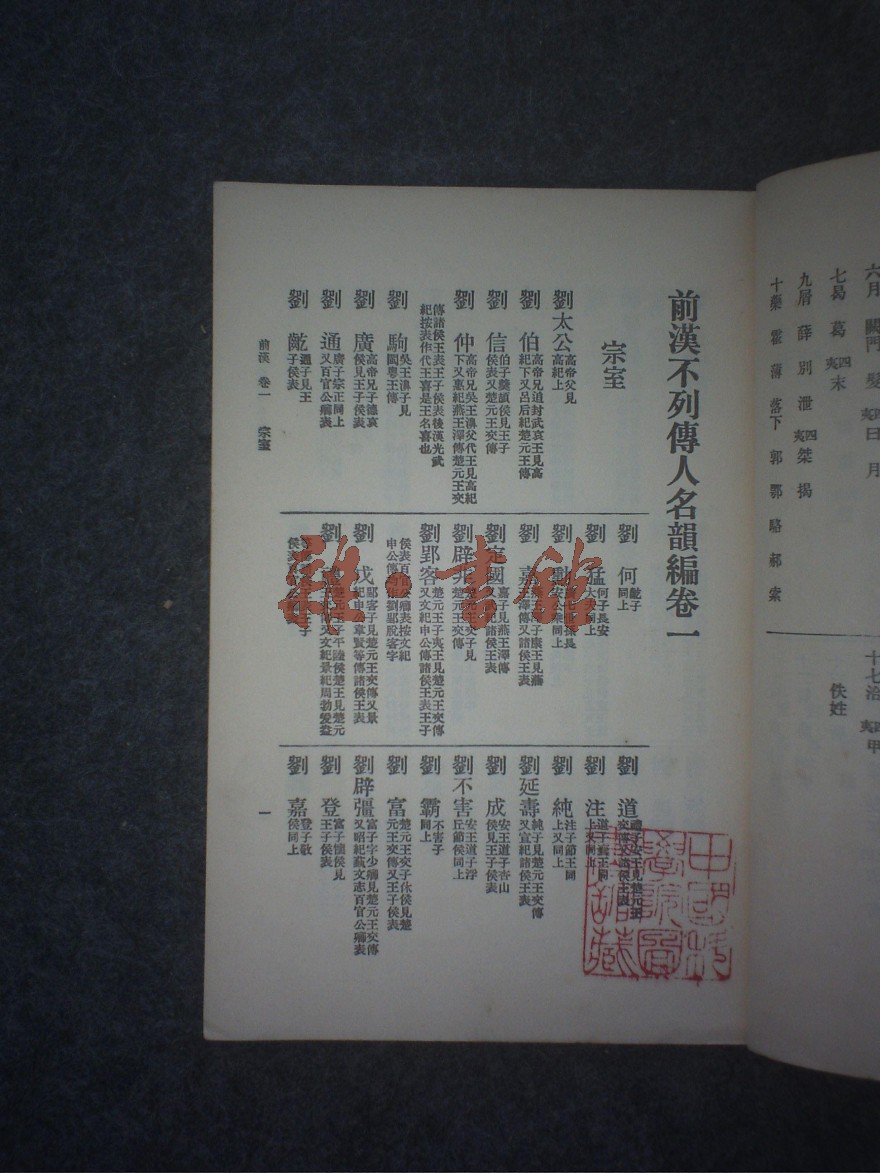 前漢不列傳人名韻編卷一
宗室
劉太公 高帝父見高紀上
劉伯 高帝兄追封武哀王見高紀下又呂后紀楚元王傳
劉信 伯子羹頡侯見王子侯表又楚元王交傳
劉仲 高帝兄吳王濞父代王見高紀下又惠紀燕王澤傳楚元王交傳諸侯王表王子侯表後漢光武紀按表作代王喜是王名喜也
劉駒 吳王濞子見閩粵王傳
劉廣 高帝兄子德哀侯見王子侯表
劉通 廣子宗正同上又百官公卿表
劉齕 通子見王子侯表
劉何 齕子同上
劉猛 何子長安大夫同上
劉
劉嘉
劉定國 嘉子見燕王澤傳
劉辟非 楚元王交子見楚元王交傳
劉郢客 楚元王交子夷王見楚元王交傳又文紀申公傳諸侯王表王子侯表百官公卿表按文紀
劉戊 郢客子見楚元王交傳又景紀申公韋賢等傳諸侯王表
劉禮
劉道
劉注
劉純 注子節王同上又同上
劉延壽 純子見楚元王交傳又宣紀諸侯王表
劉成 安王道子杏山侯見王子侯表
劉不害 安王道子浮丘節侯同上
劉霸 不害子同上
劉富 楚元王交子休侯見楚元王交傳又王子侯表
劉辟彊 富子字少卿見楚元王交傳又昭紀蘇文志百官公卿表
劉登 富子懷侯見王子侯表
劉嘉 登子敬侯同上
前漢 卷一 宗室
一
六月 闕門 髮 四夷 日 月
七曷 葛 四夷 末
九屑 薛 別 泄 四夷 桀 揭
十藥 霍 薄 落下 郭 鄂 駱 郝 索
十七洽 四夷 甲
佚姓